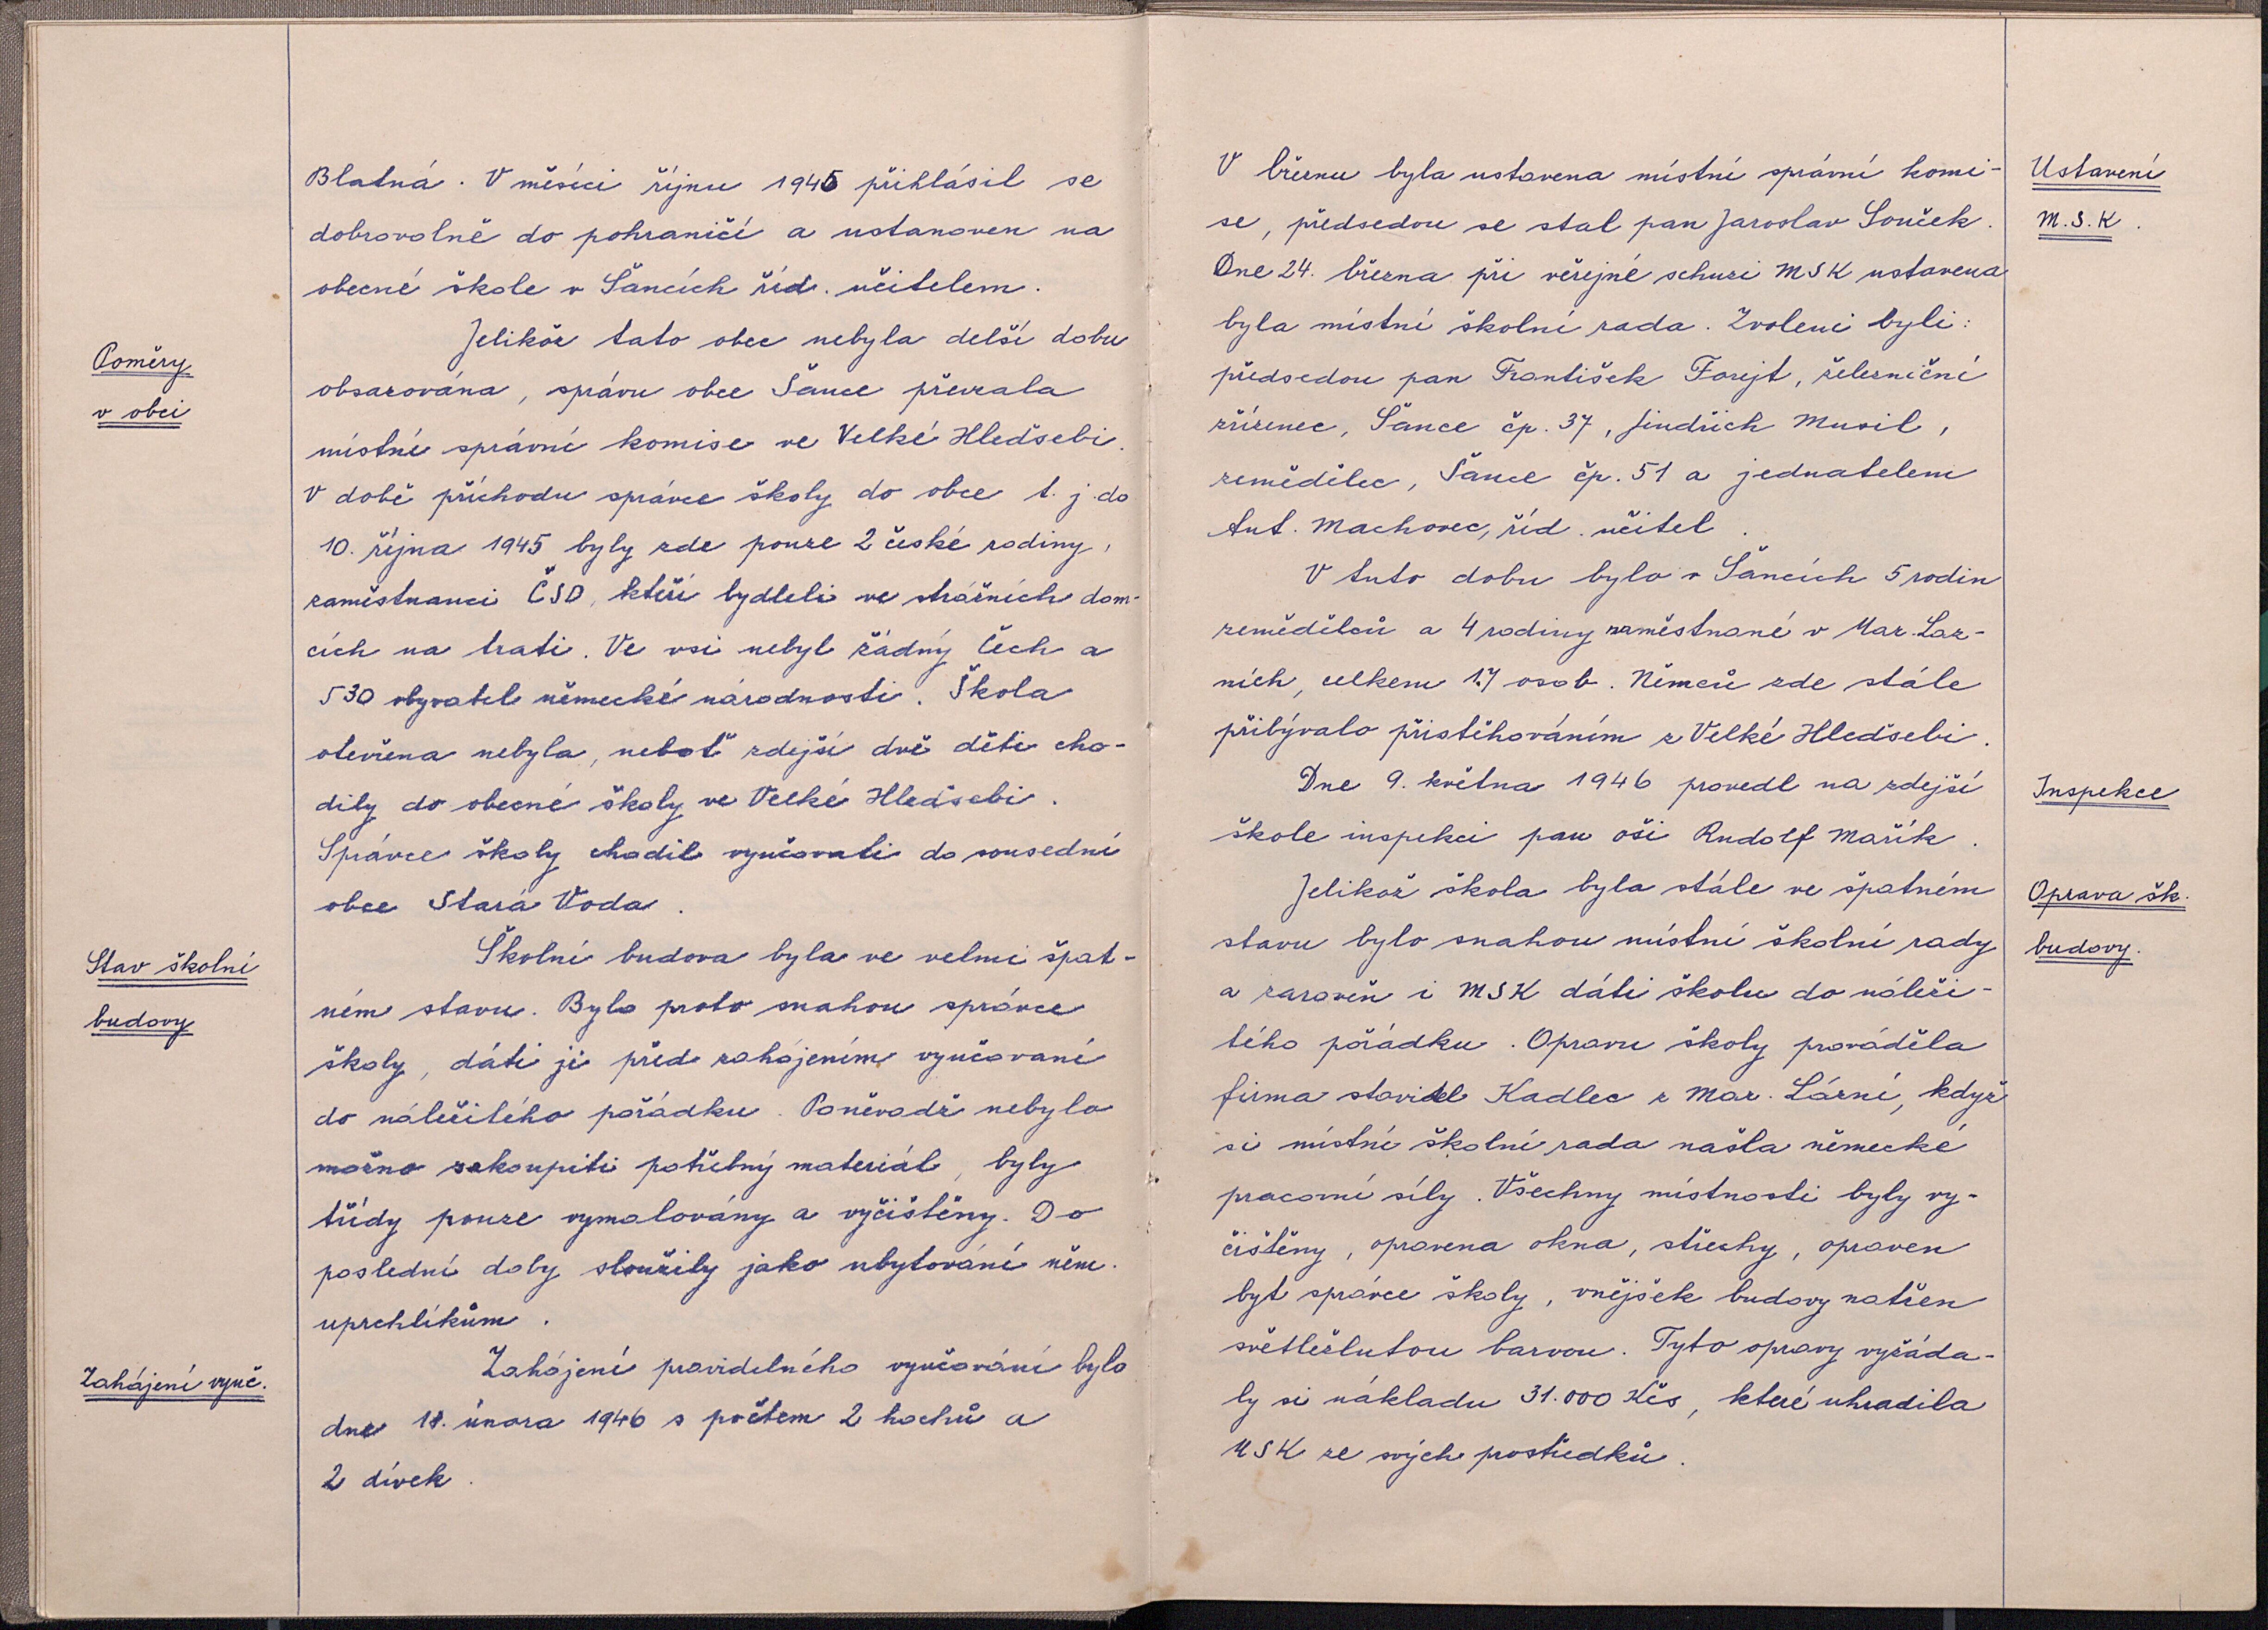 Blatná. V měsíci říjnu 1945 přihlásil se
dobrovolně do pohraničí a ustanoven na
obecné škole v Šancích říd. učitelem.
Poměry
v obci
Jelikož tato obec nebyla delší dobu
obsazována, správu obce Šance převzala
místní správní komise ve Velké Hleďsebi.
V době příchodu správce školy do obce t. j. do
10. října 1945 byly zde pouze 2 české rodiny,
zaměstnanci ČSD, kteří bydleli ve strážních dom-
cích na trati. Ve vsi nebyl žádný Čech a
530 obyvatel německé národnosti. Škola
otevřena nebyla, neboť zdejší dvě děti cho-
dily do obecné školy ve Velké Hleďsebi.
Správce školy chodil vyučovati do sousední
obce Stará Voda.
Stav školní
budovy
Školní budova byla ve velmi špat-
ném stavu. Bylo proto snahou správce
školy, dáti ji před zahájením vyučovaní
do náležitého pořádku. Poněvadž nebylo
možno zakoupiti potřebný materiál, byly
třídy pouze vymalovány a vyčištěny. Do
poslední doby sloužily jako ubytování něm.
uprchlíkům.
Zahájení vyuč.
Zahájení pravidelného vyučování bylo
dne 18. února 1946 s počtem 2 hochů a
2 dívek.
V březnu byla ustavena místní správní komi-
se, předsedou se stal pan Jaroslav Souček.
Ustavení
M.S.K.
Dne 24. března při veřejné schuzi MSK ustavena
byla místní školní rada. Zvoleni byli:
předsedou pan František Forejt, železniční
zřízenec, Šance čp. 37, Jindřich Musil,
zemědělec, Šance čp. 51 a jednatelem
Ant. Machovec, říd. učitel.
V tuto dobu bylo v Šancích 5 rodin
zemědělců a 4 rodiny zaměstnané v Mar. Laz-
ních, celkem 17 osob. Němců zde stále
přibývalo přistěhováním z Velké Hleďsebi.
Inspekce
Dne 9. května 1946 provedl na zdejší
škole inspekci pan oši Rudolf Mařík.
Oprava šk.
budovy.
Jelikož škola byla stále ve špatném
stavu bylo snahou místní školní rady
a zaroveň i MSK dáti školu do náleži-
tého pořádku. Opravu školy prováděla
firma stavitel Kadlec z Mar. Lázní, když
si místní školní rada našla německé
pracovní síly. Všechny místnosti byly vy-
čištěny, opravena okna, střechy, opraven
byt správce školy, vnějšek budovy natřen
světležlutou barvou. Tyto opravy vyžáda-
ly si nákladu 31.000 Kčs, které uhradila
MSK ze svých prostředků.